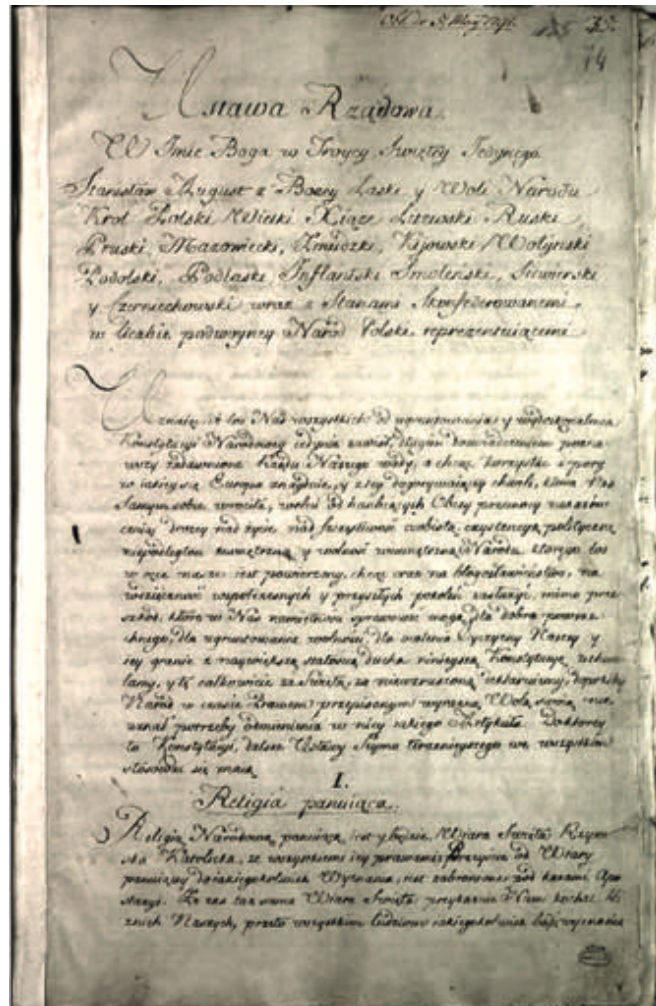 14
Ustawa Rządowa.
W Imie Boga w Troycy Swiętey Jedynego.
Stanisław August z Bożey Łaski y Woli Narodu
Krol Polski Wielki Xiąże Litewski Ruski
Pruski, Mazowiecki, Zmudzki, Kijowski Wołyński
Podolski, Podlaski, Inflantski Smolenski, Siewierski
y Czerniechowski wraz z Stanami Skonfederowanemi
w liczbie podwoyney Narod Polski reprezentuiącemi
Uznaiąc, iż los Nas wszystkich od ugruntowania y wydoskonalenia
Konstytucyi Narodowey iedynie zawisł, długim doswiadczeniem pozna
wszy zadawnione Rządu Naszego wady, a chcąc korzystać z pory
w iakiey się Europa znayduie, y z tey dogorywaiącey chwili, ktora Nas
samym sobie wrociła, wolni od hanbiących Obcey przemocy nakazow
ceniąc drożey nad życie, nad szczęśliwość osobistą, exystencyą polityczną
niepodległość zewnętrzną y wolność wewnętrzną Narodu, ktorego los
w ręce nasze iest powierzony, chcąc oraz na błogosławieństwo, na
wdzięczność wspołczesnych y przyszłych pokoleń zasłużyć, mimo prze
szkod, ktore w Nas namiętności sprawować mogą, dla dobra powsze
chnego, dla ugruntowania wolności, dla ocalenia Oyczyzny Naszey y
iey granic z naywiększą stałością ducha ninieyszą Konstytucyą uchwa
lamy, y tę całkowicie za swiętą, za niewzruszoną deklaruiemy, dopokiby
Narod w czasie Prawem przepisanym wyraźną Wolą swoią nie
uznał potrzeby odmienienia w niey iakiego Artykułu. Do ktorey
to Konstytucyi, dalsze Ustawy Seymu teraznieyszego we wszystkim
stosować się maią
I.
Religia panuiąca.
Religią Narodową panuiącą iest y będzie Wiara Swięta Rzym
ska Katolicka, ze wszystkiemi iey prawami. Przeyście od Wiary
panuiącey do iakiegokolwiek Wyznania, iest zabronione pod karami Apo
stazyi. Że zaś taż sama Wiara Swięta przykazuie Nam kochać bli
znich Naszych, przeto wszystkim ludziom iakiegokolwiek bądź wyznania